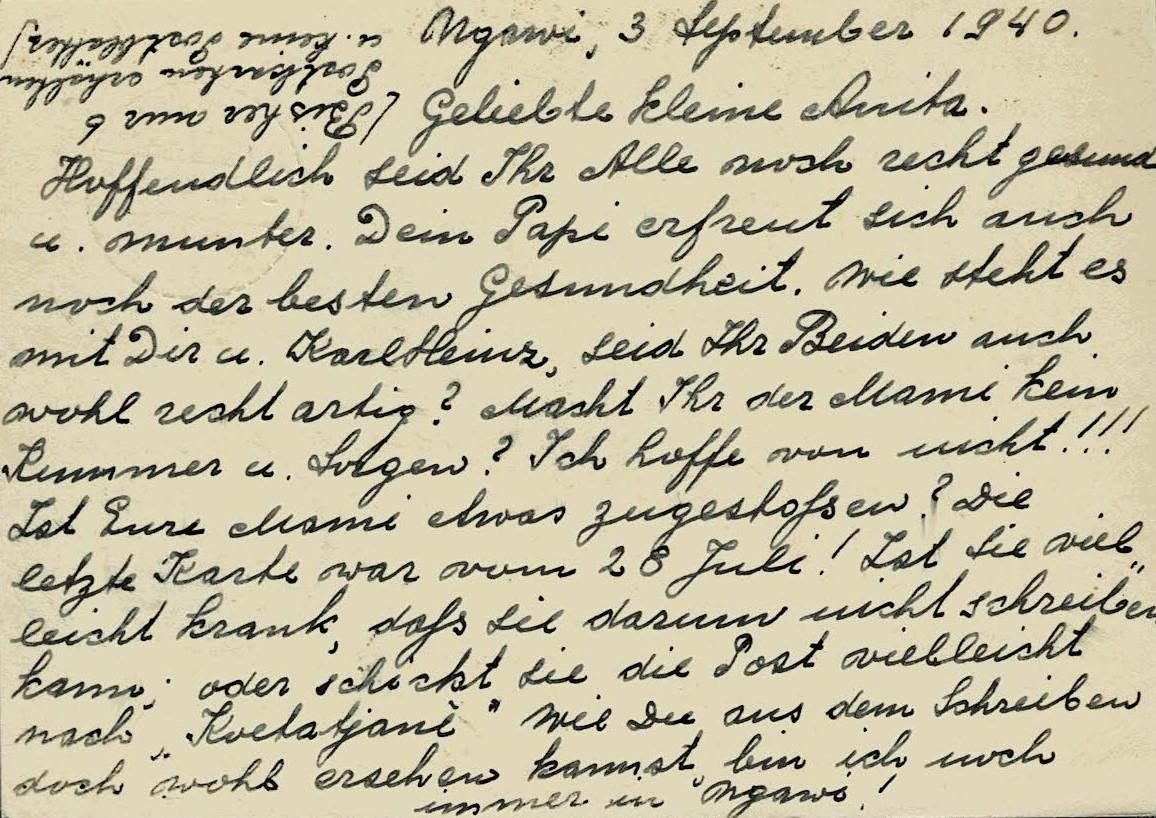 Ngawi, 3 September 1940.
(Bisher nur 6
Postkarten erhalten
u. keine Postblätter)
Geliebte kleine Anita.
Hoffendlich seid Ihr Alle noch recht gesund
u. munter. Dein Papi erfreut sich auch
noch der besten Gesundheit. Wie steht es
mit Dir u. KarlHeinz, seid Ihr Beiden auch
wohl recht artig? Macht Ihr der Mami kein
Kummer u. Sorgen? Ich hoffe von nicht!!!
Ist Eure Mami etwas zugestoßsen? Die
letzte Karte war vom 28 Juli! Ist Sie viel„
leicht krank, daſs Sie darum nicht schreiben
kann; oder schickt Sie die Post vielleicht
nach „Koetatjanè" Wie Du aus dem Schreiben
doch wohl ersehen kannst, bin ich noch
immer in Ngawi!